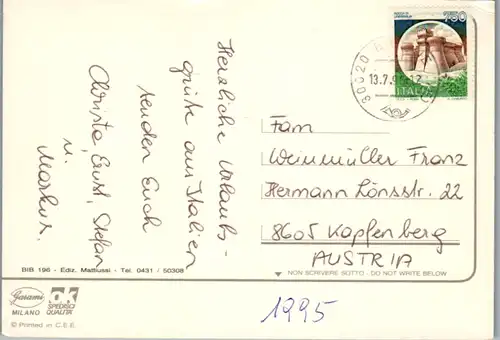 Herzliche Urlaubs-
grüße aus Italien
senden Euch
Christa, Ernst, Stefan
u.
Markus.
750
ITALIA
30020
13.7.9
Fam
Weinmüller Franz
Hermann Lönsstr. 22
8605 Kapfenberg
AUSTRIA
BIB 196 - Ediz. Mattiussi - Tel. 0431 / 50308
NON SCRIVERE SOTTO - DO NOT WRITE BELOW
Garami
MILANO
SPEDISCI
QUALITA'
© Printed in C.E.E.
1995